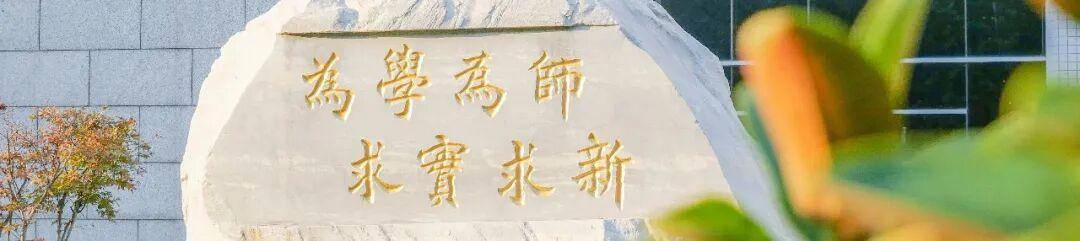 為學為師
求實求新